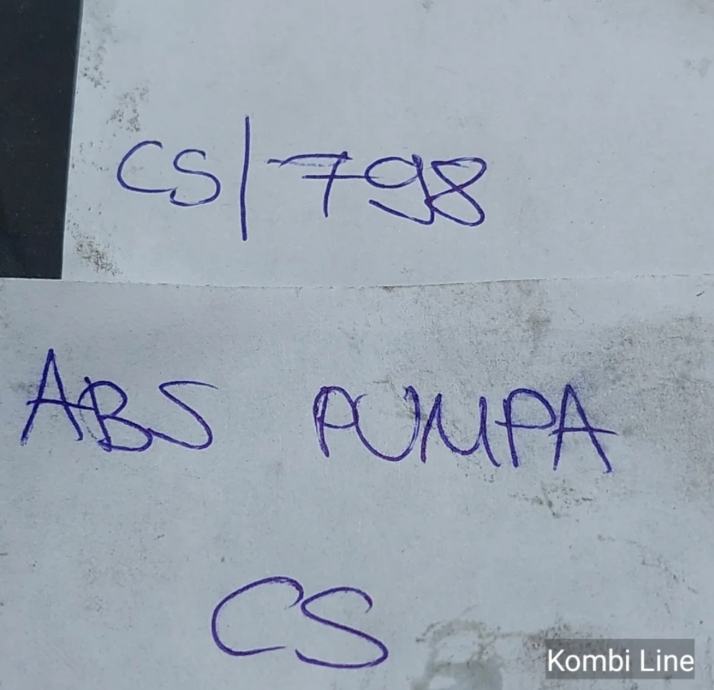 CS/798
ABS PUMPA
CS
Kombi Line